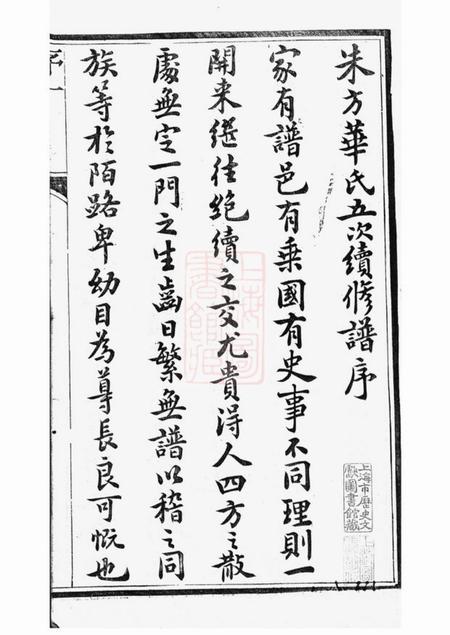 朱方華氏五次續修譜序
家有譜邑有乗國有史事不同理則一
開来繼往絶續之交尤貴得人四方之散
處無定一門之生齒日繁無譜以稽之同
族等於陌路卑幼目為尊長良可慨也
序 一
上海圖書館藏
上海市歷史文
獻圖書館藏